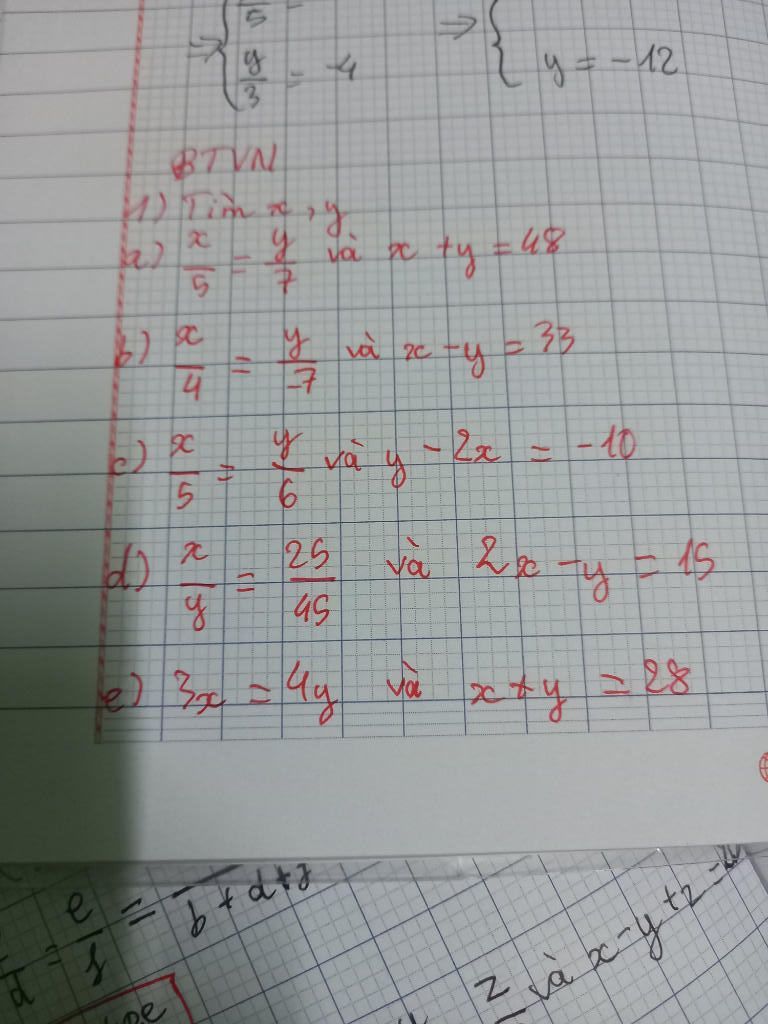 ⇒ { 5 =
y/3 = -4 ⇒ { y = -12
BTVN
1) Tìm x, y
a) x/5 = y/7 và x + y = 48
b) x/4 = y/-7 và x - y = 33
c) x/5 = y/6 và y - 2x = -10
d) x/y = 25/45 và 2x - y = 15
e) 3x = 4y và x + y = 28
d = e/f = b + d + f
z và x - y + z =